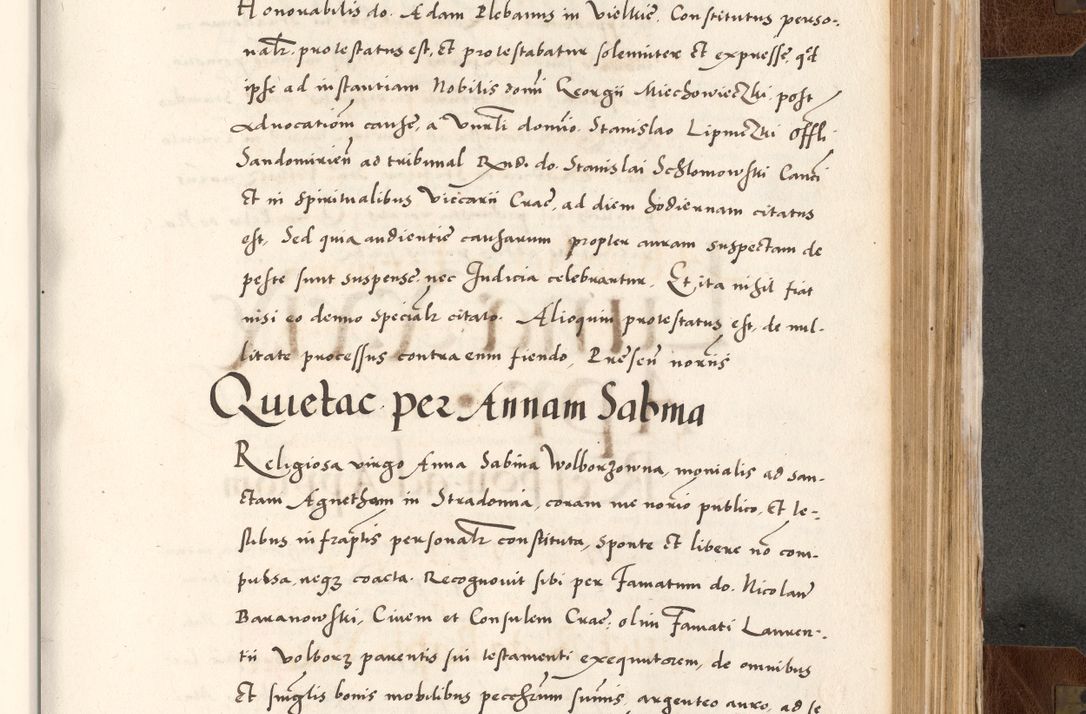 Honorabilis do. Adam Plebanus in Vielkie. Constitutus perso-
nalr. protestatus est, Et protestabatur solemniter Et expresse, qd
ipse ad instantiam Nobilis domi Georgii Miechowieczki, post
Advocationem cause, a Vnrli domino. Stanislao Lipniczki Offli
Sandomirien ad tribunal Rndi do. Stanislai Schlomowski Canci
Et in spiritualibus Viccarii Crac, ad diem hodiernam citatus
est, Sed quia audientie causarum propter auram suspectam de
peste sunt suspense, nec Judicia celebrantur. Et ita nihil fiat
nisi eo denuo specialr citato. Alioquin protestatus est, de nul-
litate processus contra eum fiendo, Presen noriis
Quietac. per Annam Sabina
Religiosa virgo Anna Sabina Wolborzowna, monialis ad san-
ctam Agnetham in Stradomia, coram me norio publico, Et te-
stibus infraptis personalr constituta, sponte Et libere no com-
pulsa, neqz coacta. Recognovit sibi per Famatum do. Nicolaum
Baranowski, Civem et Consulem Crac, olim Famati Lauren-
tii Volborz parentis sui testamenti exequutorem, de omnibus
Et singlis bonis mobilibus pecchrum sumis, argenteo auro, ad se